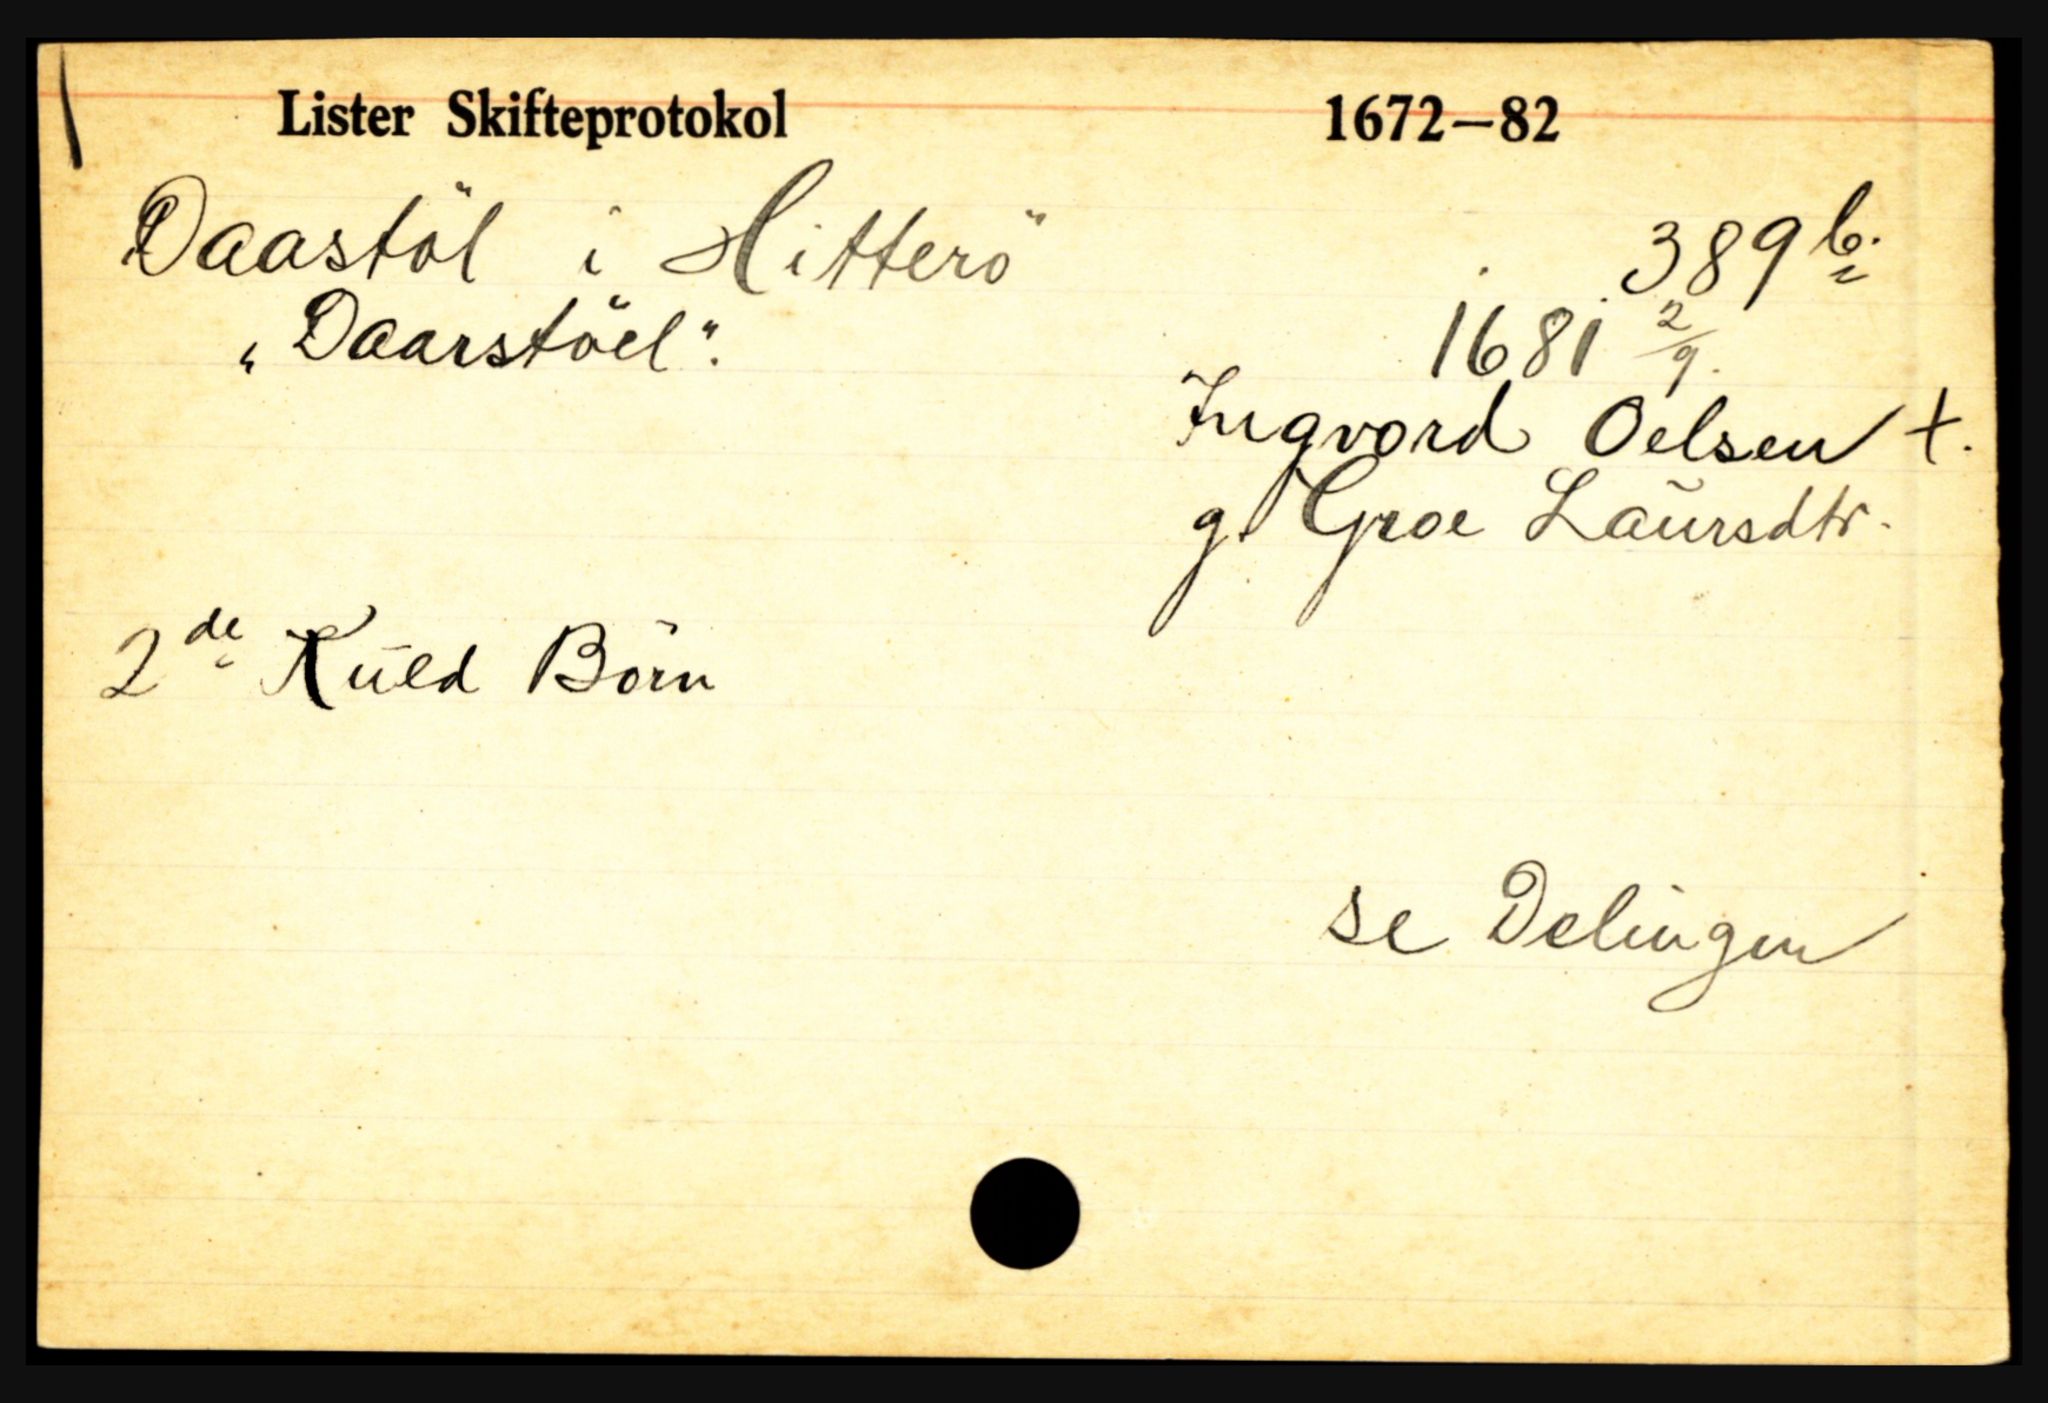 Lister Skifteprotokol 1672–82
Daastöl i Hitterö 389 b.
„Daarstöel". 1681 2/9.
Ingvord Oelsen †.
g. Groe Laŭrsdtr.
2de Kŭld Börn
se Delingen